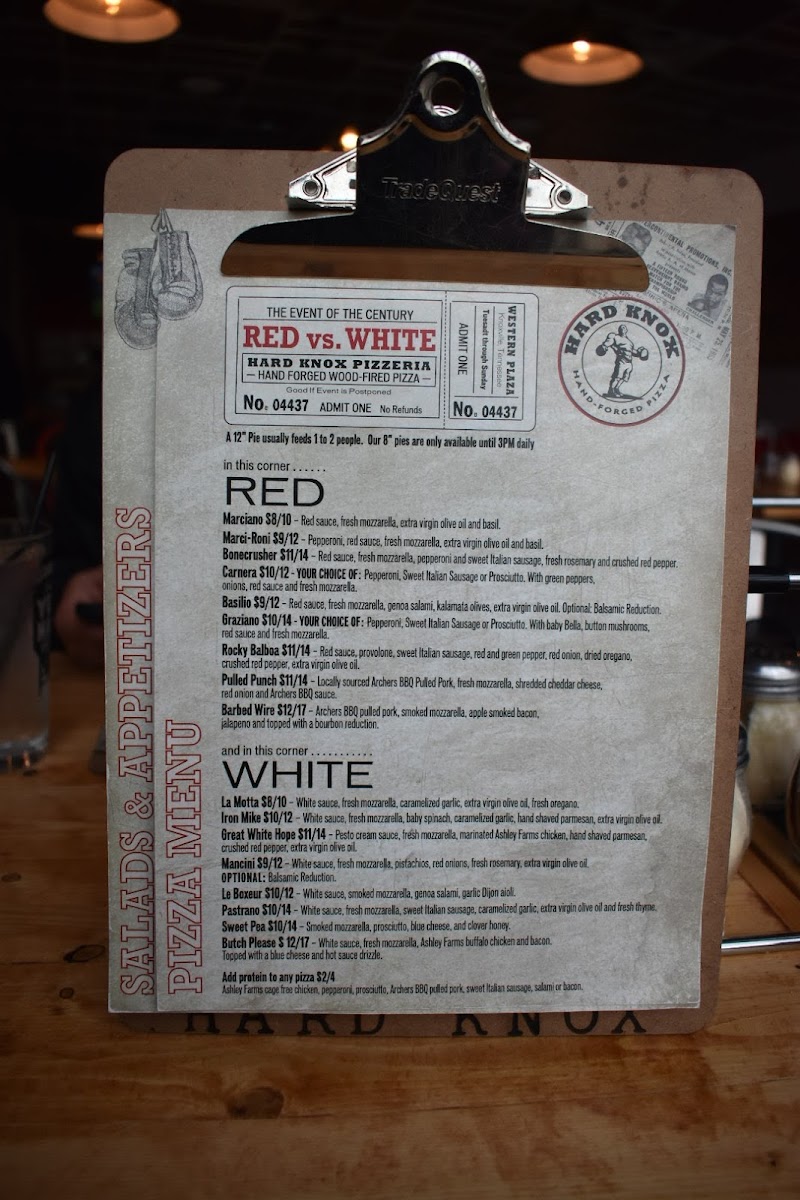 TradeQuest
THE EVENT OF THE CENTURY
RED vs. WHITE
HARD KNOX PIZZERIA
— HAND FORGED WOOD-FIRED PIZZA —
Good If Event is Postponed
No. 04437 ADMIT ONE No Refunds
WESTERN PLAZA
Knoxville, Tennessee
Tuesadt through Sunday
ADMIT ONE
No. 04437
HARD KNOX
HAND-FORGED PIZZA
A 12" Pie usually feeds 1 to 2 people. Our 8" pies are only available until 3PM daily
in this corner . . . . . .
RED
Marciano $8/10 – Red sauce, fresh mozzarella, extra virgin olive oil and basil.
Marci-Roni $9/12 – Pepperoni, red sauce, fresh mozzarella, extra virgin olive oil and basil.
Bonecrusher $11/14 – Red sauce, fresh mozzarella, pepperoni and sweet Italian sausage, fresh rosemary and crushed red pepper.
Carnera $10/12 - YOUR CHOICE OF: Pepperoni, Sweet Italian Sausage or Prosciutto. With green peppers,
onions, red sauce and fresh mozzarella.
Basilio $9/12 – Red sauce, fresh mozzarella, genoa salami, kalamata olives, extra virgin olive oil. Optional: Balsamic Reduction.
Graziano $10/14 - YOUR CHOICE OF: Pepperoni, Sweet Italian Sausage or Prosciutto. With baby Bella, button mushrooms,
red sauce and fresh mozzarella.
Rocky Balboa $11/14 – Red sauce, provolone, sweet Italian sausage, red and green pepper, red onion, dried oregano,
crushed red pepper, extra virgin olive oil.
Pulled Punch $11/14 – Locally sourced Archers BBQ Pulled Pork, fresh mozzarella, shredded cheddar cheese,
red onion and Archers BBQ sauce.
Barbed Wire $12/17 – Archers BBQ pulled pork, smoked mozzarella, apple smoked bacon,
jalapeno and topped with a bourbon reduction.
and in this corner . . . . . . . . . . .
WHITE
La Motta $8/10 – White sauce, fresh mozzarella, caramelized garlic, extra virgin olive oil, fresh oregano.
Iron Mike $10/12 – White sauce, fresh mozzarella, baby spinach, caramelized garlic, hand shaved parmesan, extra virgin olive oil.
Great White Hope $11/14 – Pesto cream sauce, fresh mozzarella, marinated Ashley Farms chicken, hand shaved parmesan,
crushed red pepper, extra virgin olive oil.
Mancini $9/12 – White sauce, fresh mozzarella, pistachios, red onions, fresh rosemary, extra virgin olive oil.
OPTIONAL: Balsamic Reduction.
Le Boxeur $10/12 – White sauce, smoked mozzarella, genoa salami, garlic Dijon aioli.
Pastrano $10/14 – White sauce, fresh mozzarella, sweet Italian sausage, caramelized garlic, extra virgin olive oil and fresh thyme.
Sweet Pea $10/14 – Smoked mozzarella, prosciutto, blue cheese, and clover honey.
Butch Please $ 12/17 – White sauce, fresh mozzarella, Ashley Farms buffalo chicken and bacon.
Topped with a blue cheese and hot sauce drizzle.
Add protein to any pizza $2/4
Ashley Farms cage free chicken, pepperoni, prosciutto, Archers BBQ pulled pork, sweet Italian sausage, salami or bacon.
SALADS & APPETIZERS
PIZZA MENU
HARD KNOX